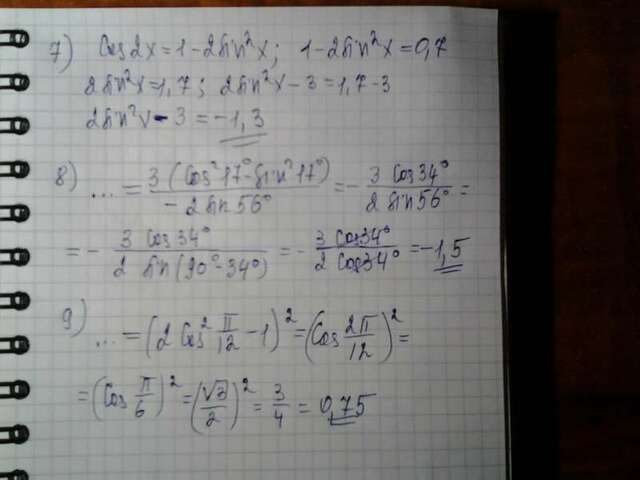 7) Cos 2x = 1 - 2sin²x ; 1 - 2sin²x = 0,7
2sin²x = 1,7 ; 2sin²x - 3 = 1,7 - 3
2sin²x - 3 = -1,3
8) ... = 3 (Cos²17° - sin²17°) / - 2 sin 56° = - 3 Cos 34° / 2 sin 56° =
= - 3 Cos 34° / 2 sin (90° - 34°) = - 3 Cos 34° / 2 Cos 34° = -1,5
9) ... = (2 Cos² π/12 - 1)² = (Cos 2π/12)² =
= (Cos π/6)² = (√3/2)² = 3/4 = 0,75